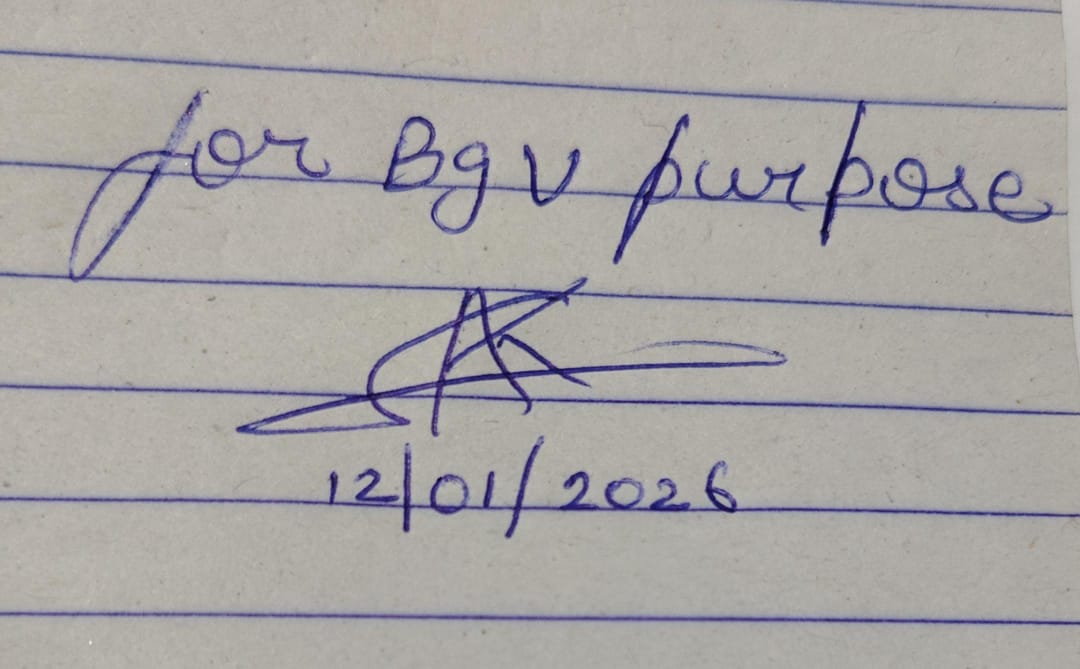 for Bgv purpose
12/01/2026